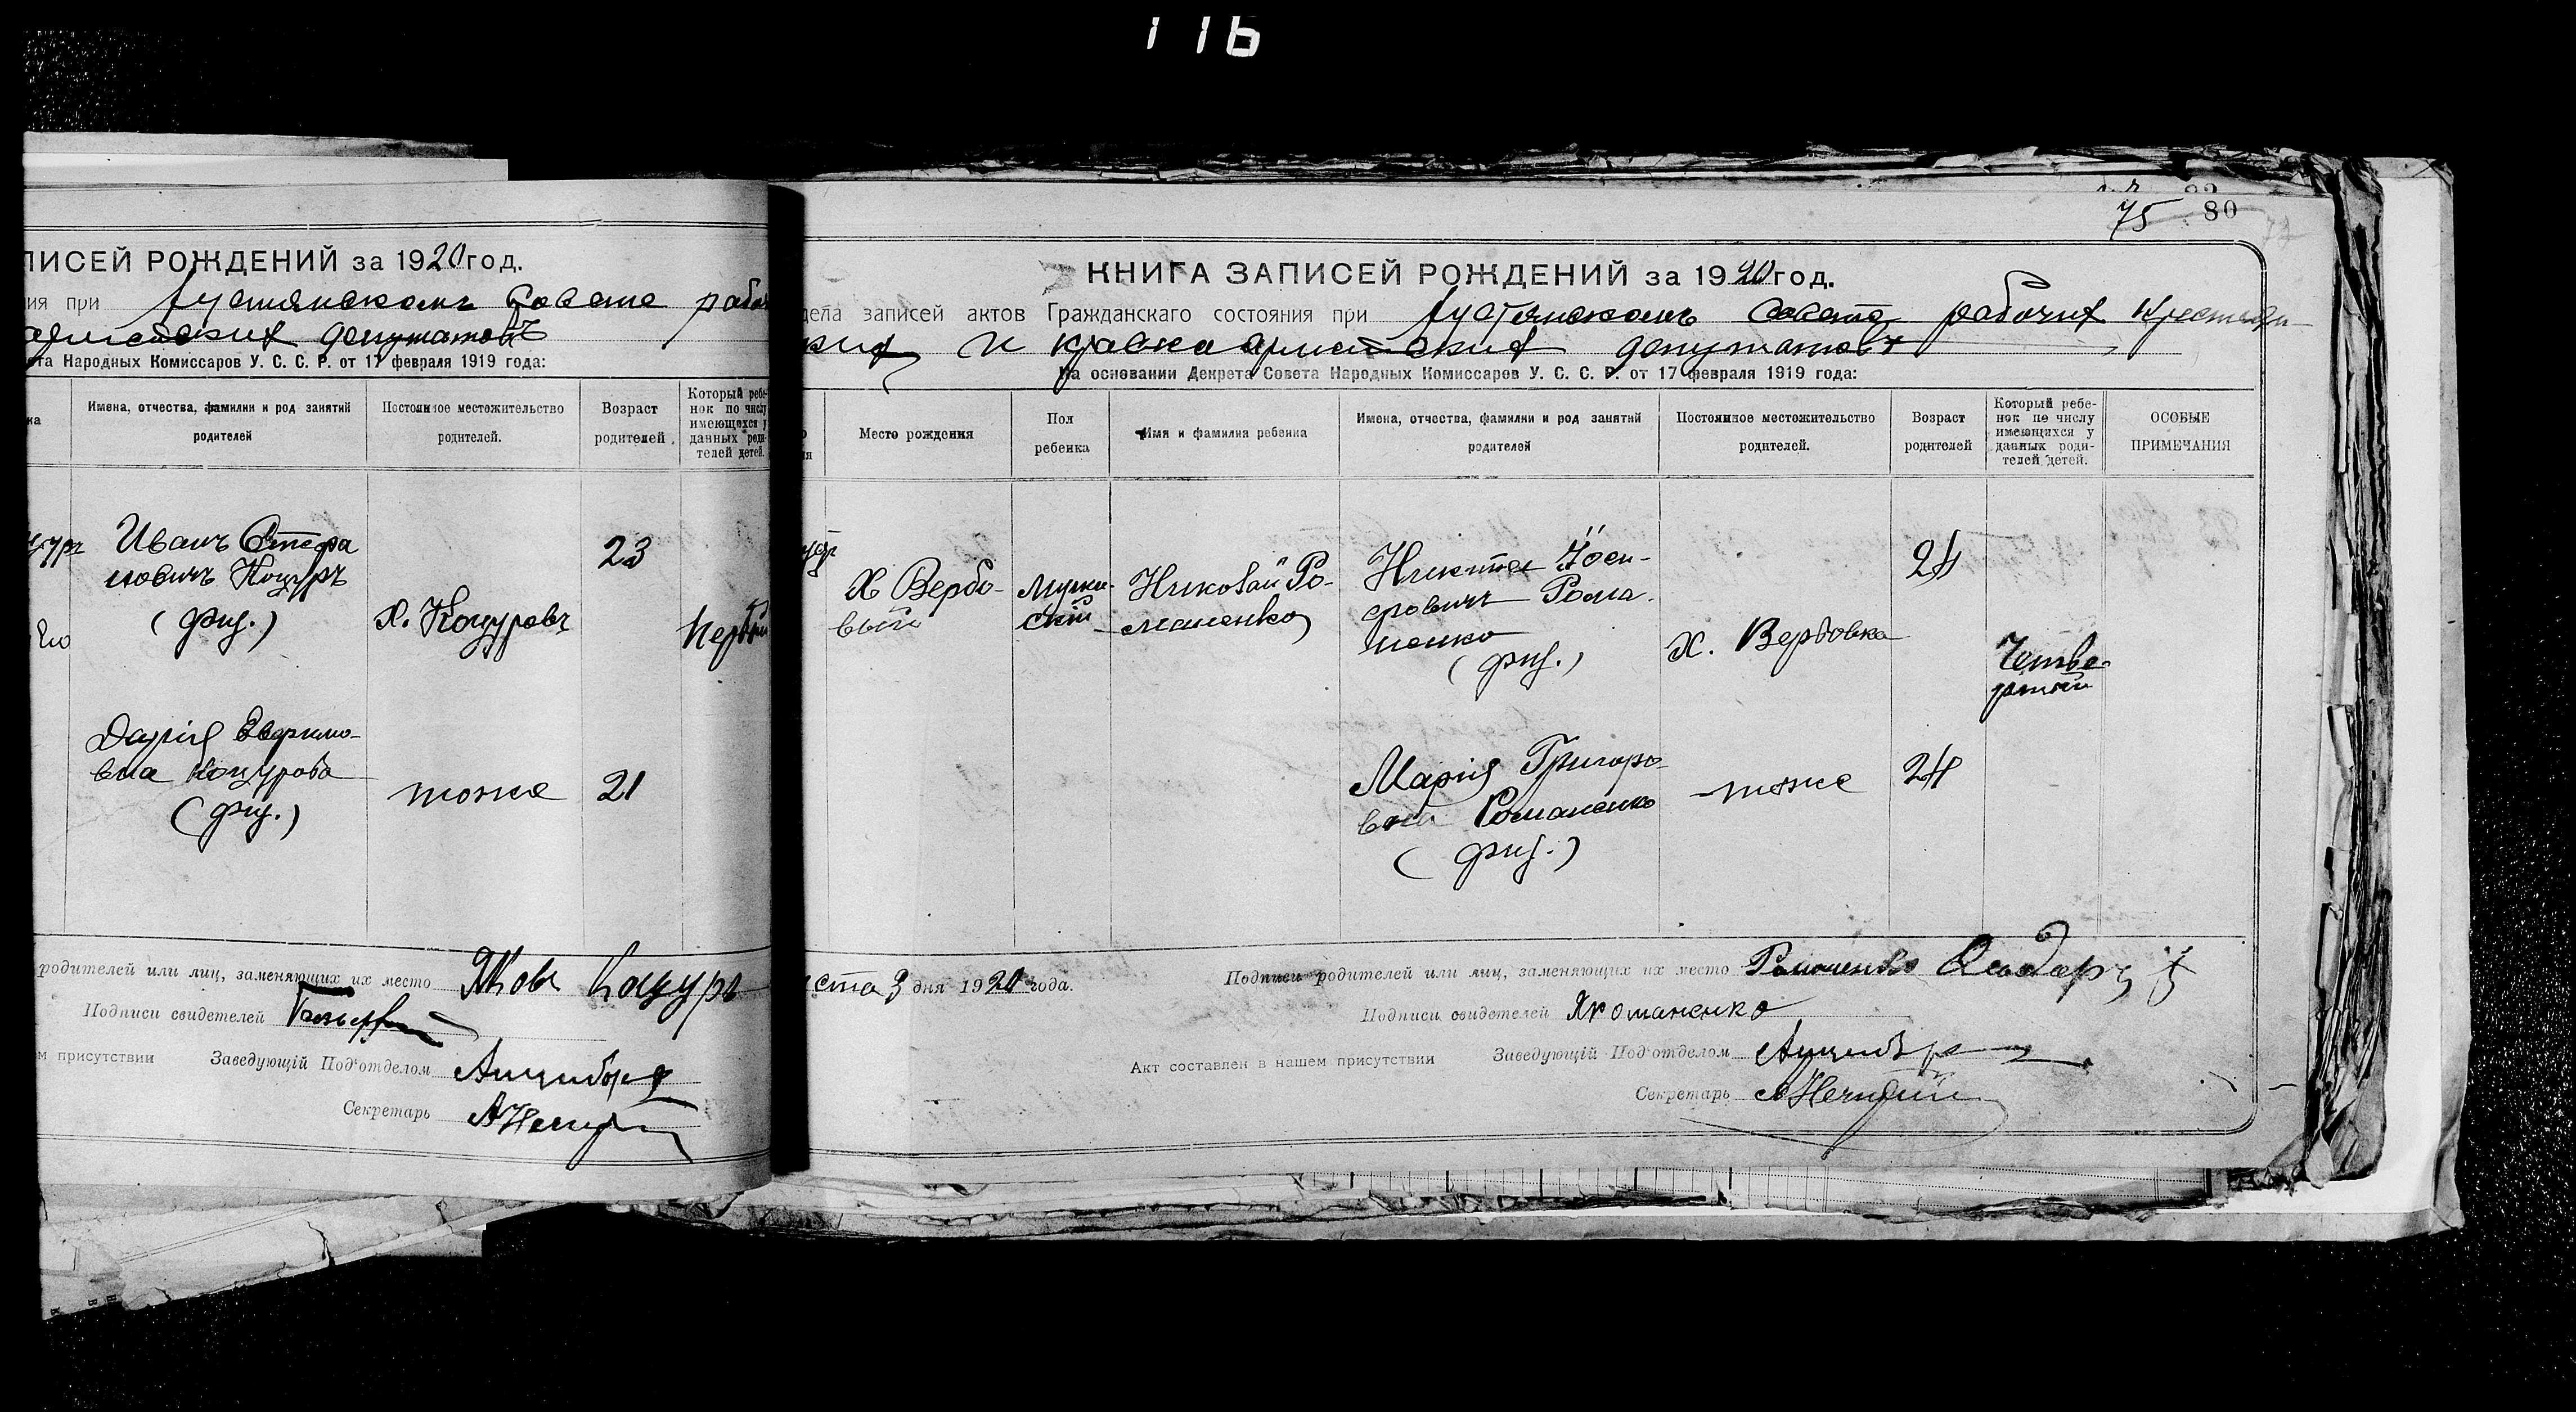 116
ПИСЕЙ РОЖДЕНИЙ за 1920 год.
ия при Лустянскомъ Совете рабо
армейских депутатовъ
ета Народных Комиссаров У. С. С. Р. от 17 февраля 1919 года:
Имена, отчества, фамилии и род занятий родителей
Постоянное местожительство родителей.
Возраст родителей.
Который ребенок по числу имеющихся у данных родителей детей.
Иванъ Стефа
новичъ Коцуръ
23
Х. Коцуровъ
Первый
Дарія
вна Коцурова
тоже
21
родителей или лиц, заменяющих их место Яковъ Коцуръ
Подписи свидетелей
м присутствии Заведующій Под'отделом
Секретарь
75 80
КНИГА ЗАПИСЕЙ РОЖДЕНИЙ за 1920 год.
дела записей актов Гражданскаго состояния при Лустянскомъ Совете рабочих Крестьян-
ских и красноармейских депутатовъ
На основании Декрета Совета Народных Комиссаров У. С. С. Р. от 17 февраля 1919 года:
Место рождения
Пол ребенка
Имя и фамилия ребенка
Имена, отчества, фамилии и род занятий родителей
Постоянное местожительство родителей.
Возраст родителей
Который ребенок по числу имеющихся у данных родителей детей.
ОСОБЫЕ ПРИМЕЧАНИЯ
Х Вербо-
вый
Мужс-
скій
Николай Ро-
маненко
Никита Іоси-
фовичъ Рома-
ненко
Х. Вербовка
24
Четве-
ртый
Марія Григоро-
вна Романенко
тоже
24
густа 3 дня 1920 года.
Подписи родителей или лиц, заменяющих их место Романенко
Подписи свидетелей Романенко
Акт составлен в нашем присутствии Заведующій Под'отделом
Секретарь